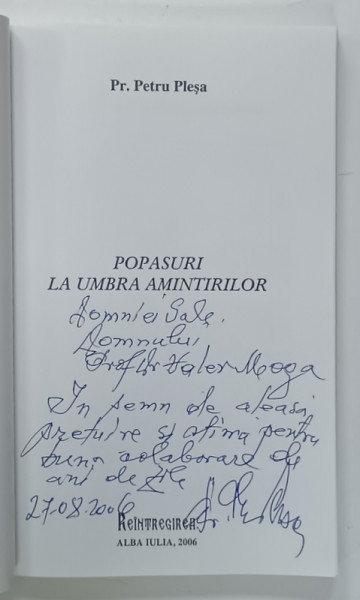 Pr. Petru Pleșa
POPASURI
LA UMBRA AMINTIRILOR
Domniei Sale,
Domnului
Prof Dr Valer Moga
În semn de aleasă
prețuire și stimă pentru
buna colaborare de
ani de zile
27.08.2006
REÎNTREGIREA
ALBA IULIA, 2006